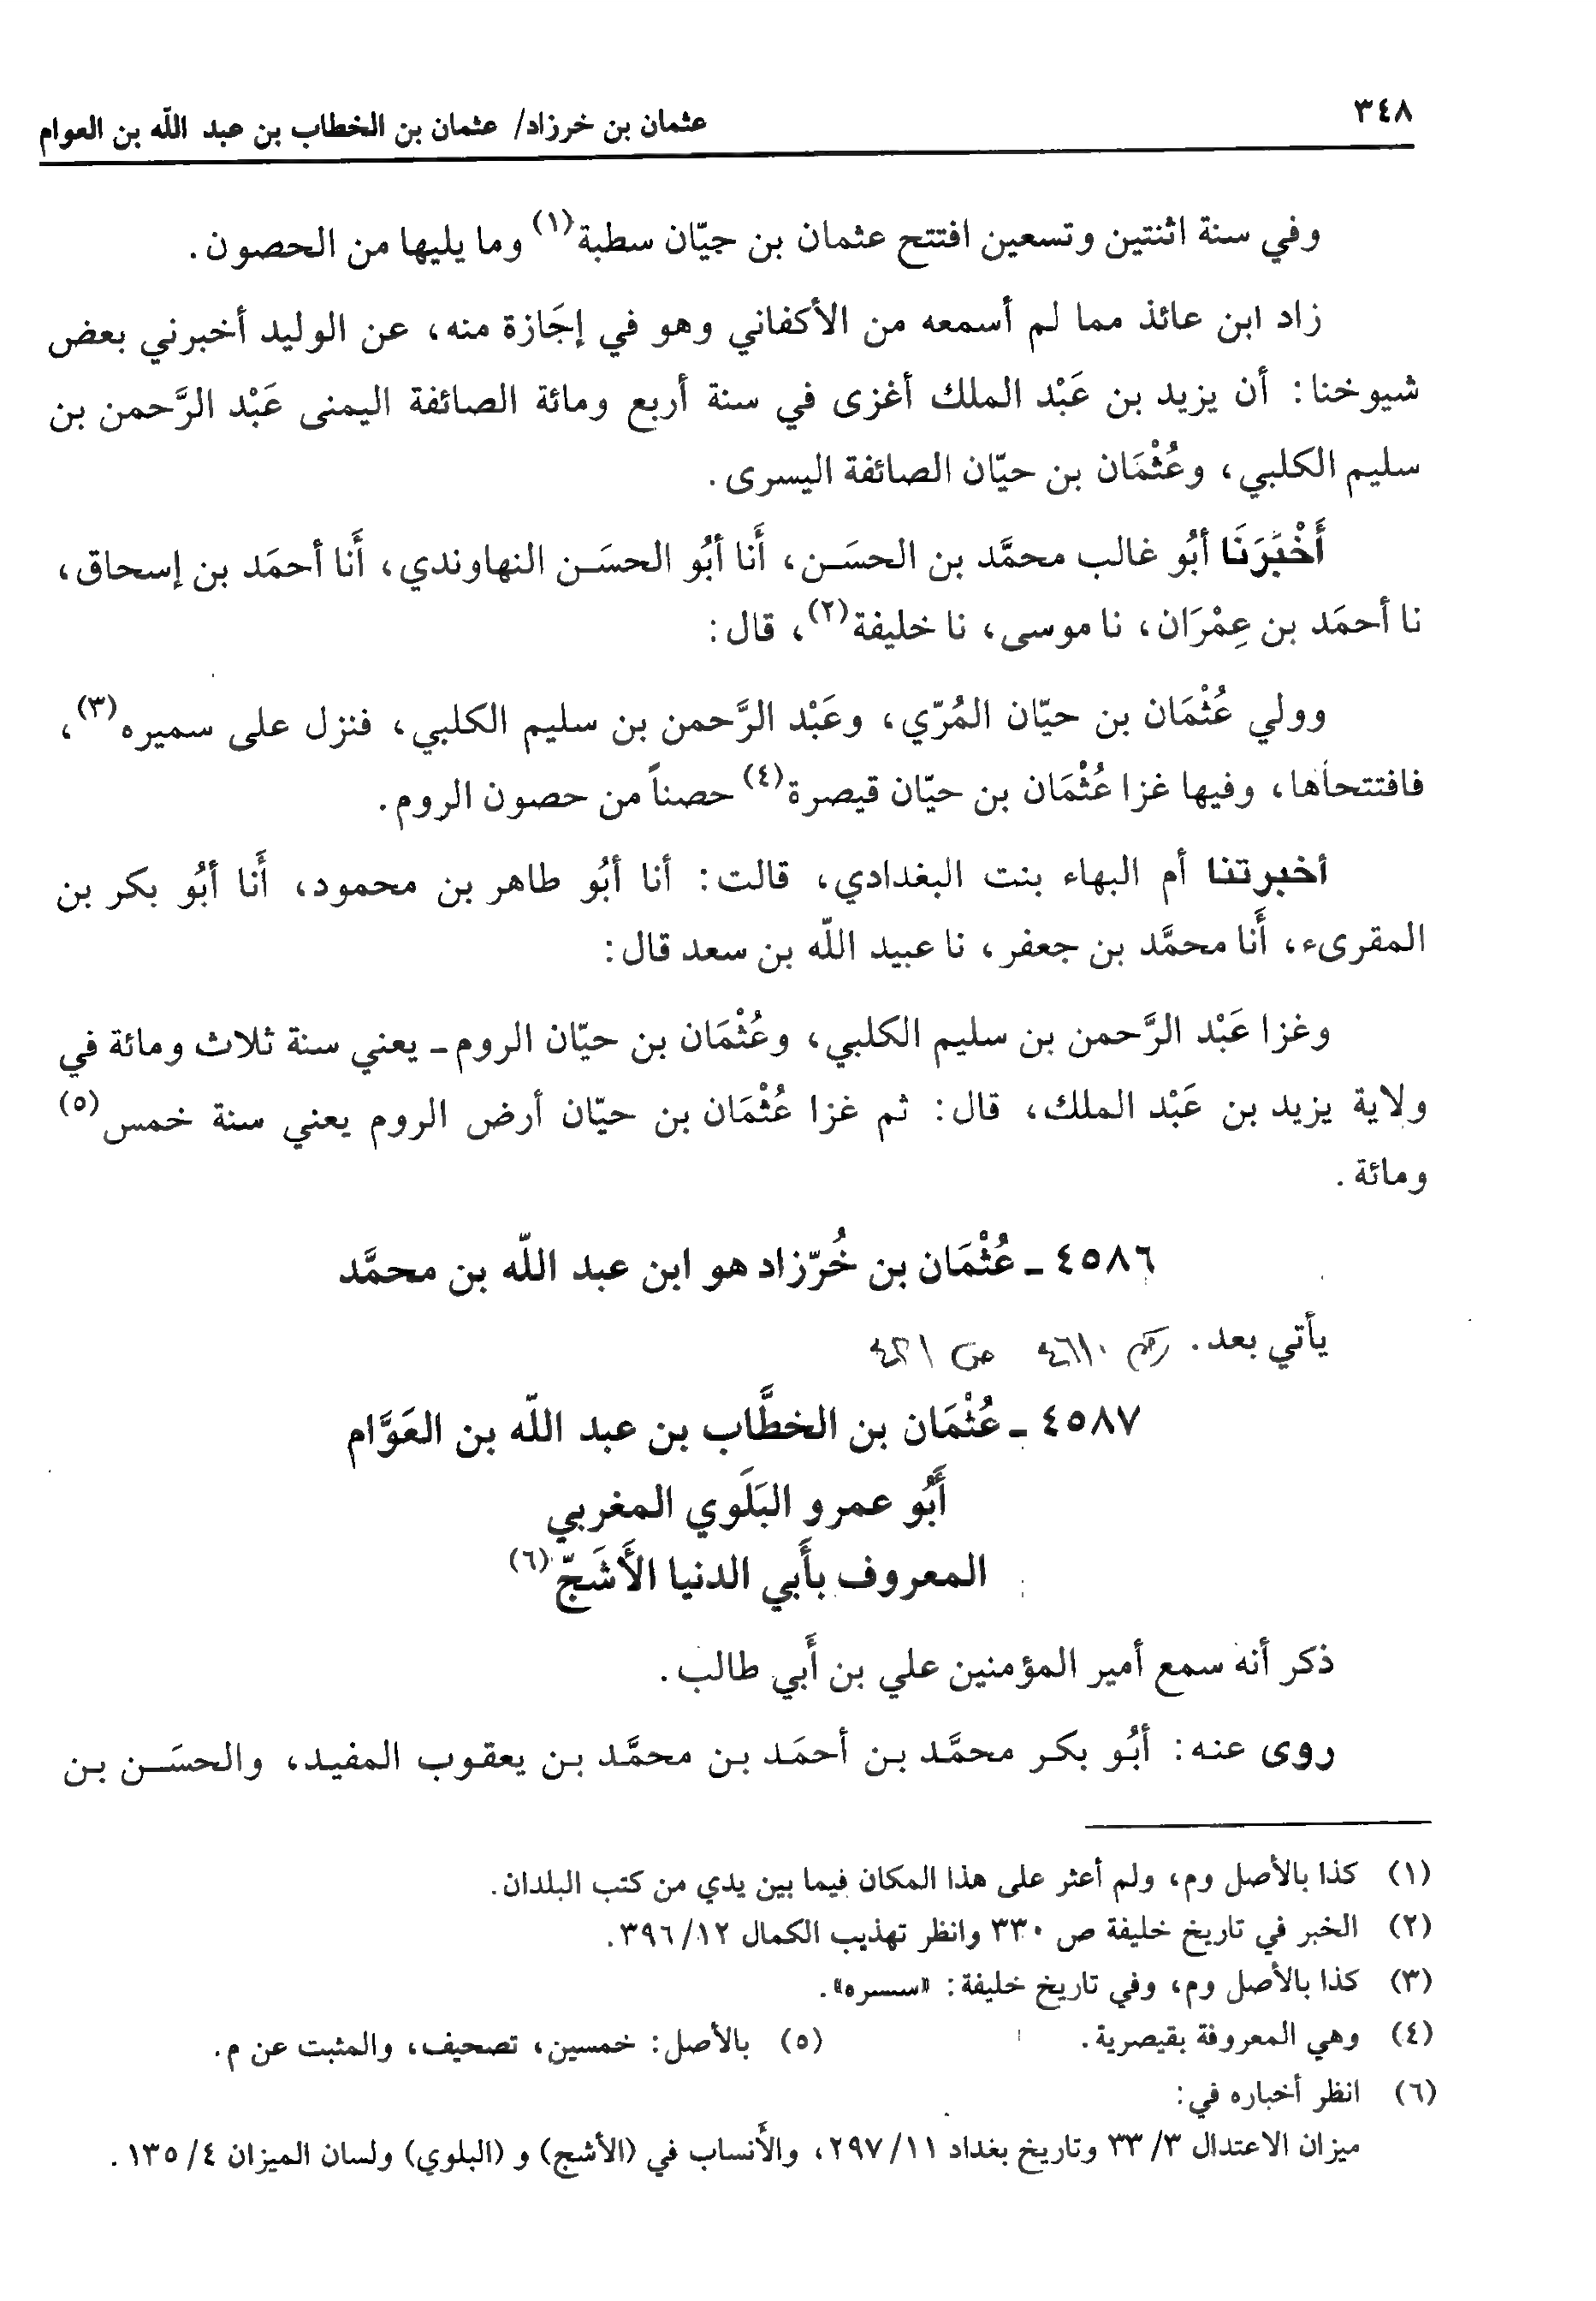 ٣٤٨
عثمان بن خرزاد/ عثمان بن الخطاب بن عبد اللّه بن العوام
وفي سنة اثنتين وتسعين افتتح عثمان بن جيّان سطبة(١) وما يليها من الحصون.
زاد ابن عائذ مما لم أسمعه من الأكفاني وهو في إجَازة منه، عن الوليد أخبرني بعض
شيوخنا: أن يزيد بن عَبْد الملك أغزى في سنة أربع ومائة الصائفة اليمنى عَبْد الرَّحمن بن
سليم الكلبي، وعُثْمَان بن حيّان الصائفة اليسرى.
أَخْبَرَنَا أبُو غالب محمَّد بن الحسَـن، أَنا أبُو الحسَـن النهاوندي، أَنا أحمَد بن إسحاق،
نا أحمَد بن عِمْرَان، نا موسى، نا خليفة(٢)، قال:
وولي عُثْمَان بن حيّان المُرّي، وعَبْد الرَّحمن بن سليم الكلبي، فنزل على سميره(٣)،
فافتتحاها، وفيها غزا عُثْمَان بن حيّان قيصرة(٤) حصناً من حصون الروم.
أخبرتنا أم البهاء بنت البغدادي، قالت: أنا أبُو طاهر بن محمود، أَنا أبُو بكر بن
المقرىء، أَنا محمَّد بن جعفر، نا عبيد اللّه بن سعد قال:
وغزا عَبْد الرَّحمن بن سليم الكلبي، وعُثْمَان بن حيّان الروم ـ يعني سنة ثلاث ومائة في
ولاية يزيد بن عَبْد الملك، قال: ثم غزا عُثْمَان بن حيّان أرض الروم يعني سنة خمس(٥)
ومائة.
٤٥٨٦ ـ عُثْمَان بن خُرّزاد هو ابن عبد اللّه بن محمَّد
يأتي بعد. رقم ٤٦١٠ ص ٤٢١
٤٥٨٧ ـ عُثْمَان بن الخطَّاب بن عبد اللّه بن العَوَّام
أَبُو عمرو البَلَوي المغربي
المعروف بأَبي الدنيا الأَشَجّ(٦)
ذكر أنه سمع أمير المؤمنين علي بن أَبي طالب.
روى عنه: أبُو بكر محمَّد بن أحمَد بن محمَّد بن يعقوب المفيد، والحسَـن بن
(١) كذا بالأصل وم، ولم أعثر على هذا المكان فيما بين يدي من كتب البلدان.
(٢) الخبر في تاريخ خليفة ص ٣٣٠ وانظر تهذيب الكمال ١٢/ ٣٩٦.
(٣) كذا بالأصل وم، وفي تاريخ خليفة: «سسره».
(٤) وهي المعروفة بقيصرية. (٥) بالأصل: خمسين، تصحيف، والمثبت عن م.
(٦) انظر أخباره في:
ميزان الاعتدال ٣/ ٣٣ وتاريخ بغداد ١١/ ٢٩٧، والأنساب في (الأشج) و (البلوي) ولسان الميزان ٤/ ١٣٥.